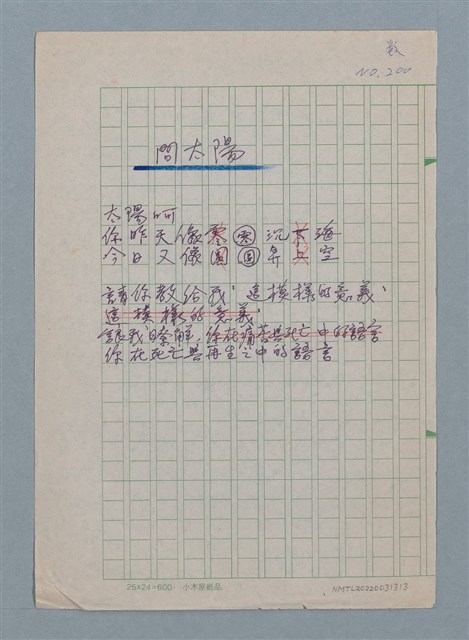 数
NO. 200
問太陽
太陽呵
你昨天像零零沉下海
今日又像圓圓昇上空
請你教給我，這模樣的意義，
這模樣的意義
讓我瞭解，你在痛苦與死亡中的語言
你在死亡與再生之中的語言
25×24=600 小本屋紙品
NMTL20220031313